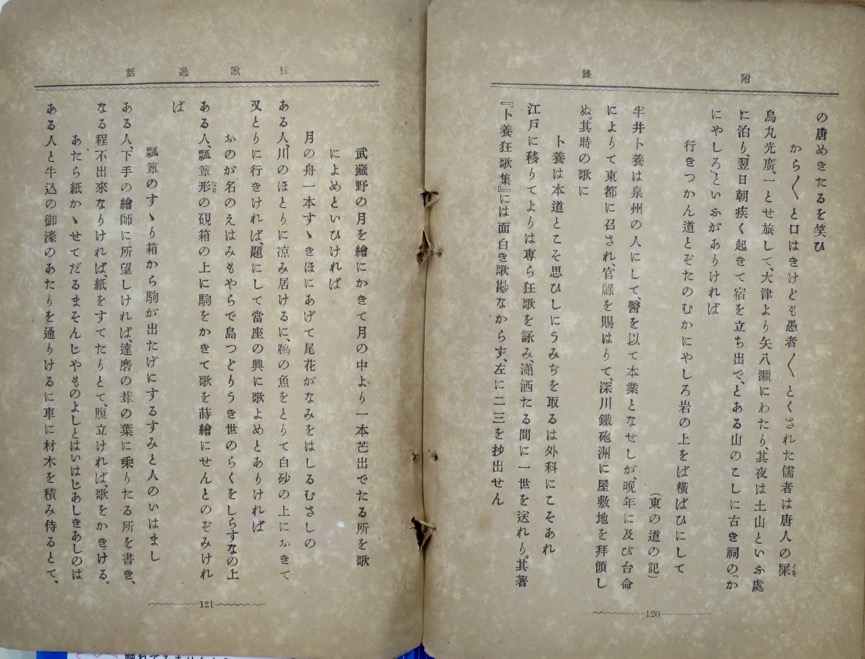 附錄
の唐めきたるを笑ひ
から〱と口はきけども愚者〱とくされた儒者は唐人の屎
烏丸光廣、一とせ旅して、大津より矢八瀬にわたり其夜は土山といふ處
に泊り、翌日朝疾く起きて宿を立ち出で、とある山のこしに古き祠の『か
にやしろ』といふがありければ
行きつかん道とぞたのむかにやしろ岩の上をば横ばひにして
(東の道の記)
半井卜養は泉州の人にして、醫を以て本業となせしが、晩年に及び台命
によりて東都に召され、官祿を賜はりて、深川鐵砲洲に屋敷地を拜領し
ぬ。其時の歌に
卜養は本道とこそ思ひしにうみぢを取るは外科にこそあれ
江戸に移りてよりは專ら狂歌を詠み、瀟洒たる間に一世を送れり。其著
『卜養狂歌集』には面白き歌尠なからず、左に二三を抄出せん
120
狂歌逸話
武藏野の月を繪にかきて月の中より一本芒出でたる所を歌
によめといひければ
月の舟一本すゝきほにあげて尾花がなみをはしるむさしの
ある人、川のほとりに涼み居けるに、鵜の魚をとりて白砂の上におきて
又とりに行きければ、題にして當座の興に歌よめとありければ
おのが名のえはみもやらで島つどりうき世のらくをしらすなの上
ある人、瓢簞形の硯箱の上に駒をかきて歌を蒔繪にせんとのぞみけれ
ば
瓢簞のすゝり箱から駒が出たげにするすみと人のいはまし
ある人、下手の繪師に所望しければ、達磨の葦の葉に乘りたる所を書き、
なる程不出來なりければ、紙をすてたりとて、腹立ければ、歌をかきける。
あたら紙かゝせてだるまそんじやものよしとはいはじあしきあしのは
ある人と牛込の御濠のあたりを通りけるに車に材木を積み侍るとて、
121